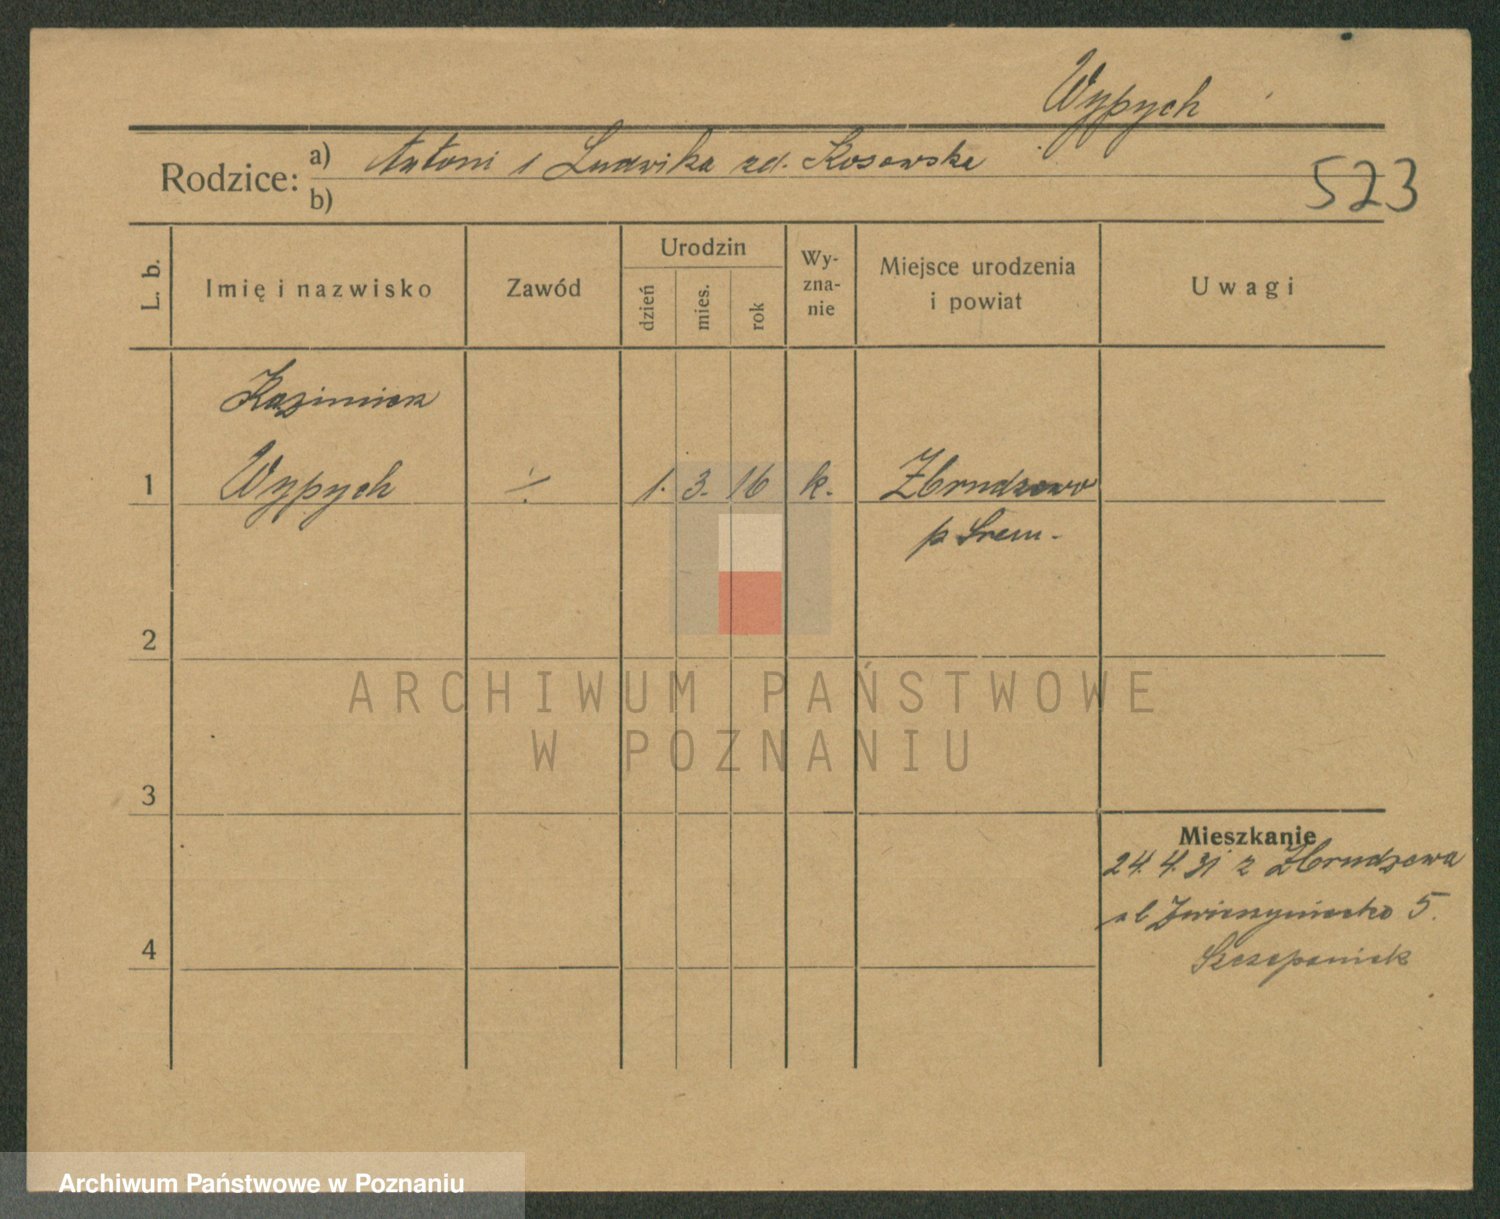 Wypych
Rodzice: a) Antoni i Ludwika zd. Kosowska
b)
523
L. b.
Imię i nazwisko
Zawód
Urodzin
dzień
mies.
rok
Wy-
zna-
nie
Miejsce urodzenia
i powiat
Uwagi
Kazimierz
1 Wypych ÷ 1. 3. 16 k. Zbrudzewo
p Śrem.
2
ARCHIWUM PAŃSTWOWE
W POZNANIU
3
Mieszkanie
24. 4. 31 z Zbrudzewa
ul Zwierzyniecka 5.
4
Szczepaniak
Archiwum Państwowe w Poznaniu